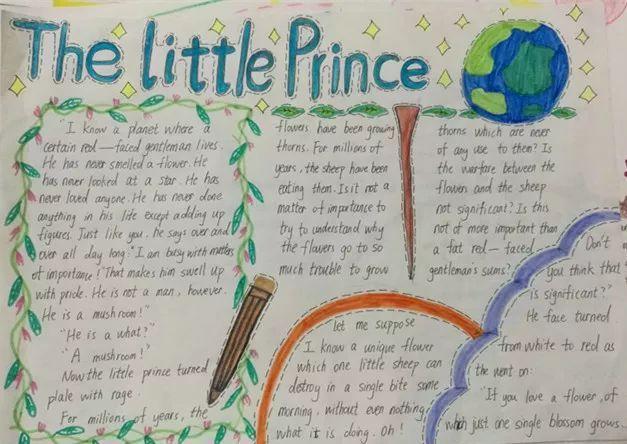 The little Prince
"I know a planet where a
certain red-faced gentleman lives.
He has never smelled a flower. He
has never looked at a star. He has
never loved anyone. He has never done
anything in his life except adding up
figures. Just like you, he says over and
over all day long:" I am busy with matters
of importance!" That makes him swell up
with pride. He is not a man, however.
He is a mushroom!"
"He is a what?"
"A mushroom!"
Now the little prince turned
plale with rage.
For millions of years, the
flowers have been growing
thorns. For millions of
years, the sheep have been
eating them. Is it not a
matter of importance to
try to understand why
the flowers go to so
much trouble to grow
thorns which are never
of any use to them? Is
the warfare between the
flowers and the sheep
not significant? Is this
not of more important than
a fat red-faced
gentleman's sums?
let me suppose
I know a unique flower
which one little sheep can
destroy in a single bite some
morning, without even nothing
what it is doing. Oh!
Don't
you think that
is significant?"
He face turned
from white to red as
the went on:
"If you love a flower, of
which just one single blossom grows